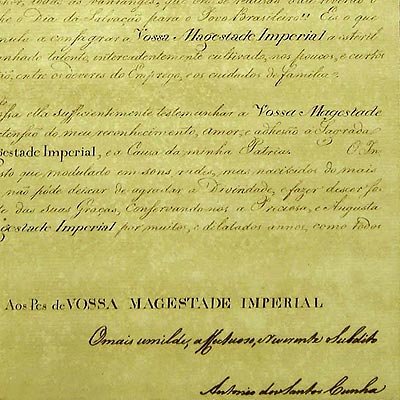 todas as vantagens, que
o Dia da Salvação para o Povo Brasileiro!! Eis o que
a consagrar a Vossa Magestade Imperial a esteril
talento, intercadentemente cultivado, nos poucos, e curtos
entre os deveres do Emprego, e os cuidados de familia.
ella sufficientemente testemunhar a Vossa Magestade
do meu reconhecimento, amor, e adhesão a Sagrada
gestade Imperial, e a Causa da minha Patria. O In
sto que, modulado em sons, rudes, mas nascidos do mais
não póde deixar de agradar a Divindade, e fazer descer so
te das Suas Graças, Conservando-nos a Preciosa, e Augusta
agestade Imperial por muitos, e dilatados annos, como todos
Aos Pes de VOSSA MAGESTADE IMPERIAL
O mais umilde, affectuozo, Reverente Subdito
Antonio dos Santos Cunha